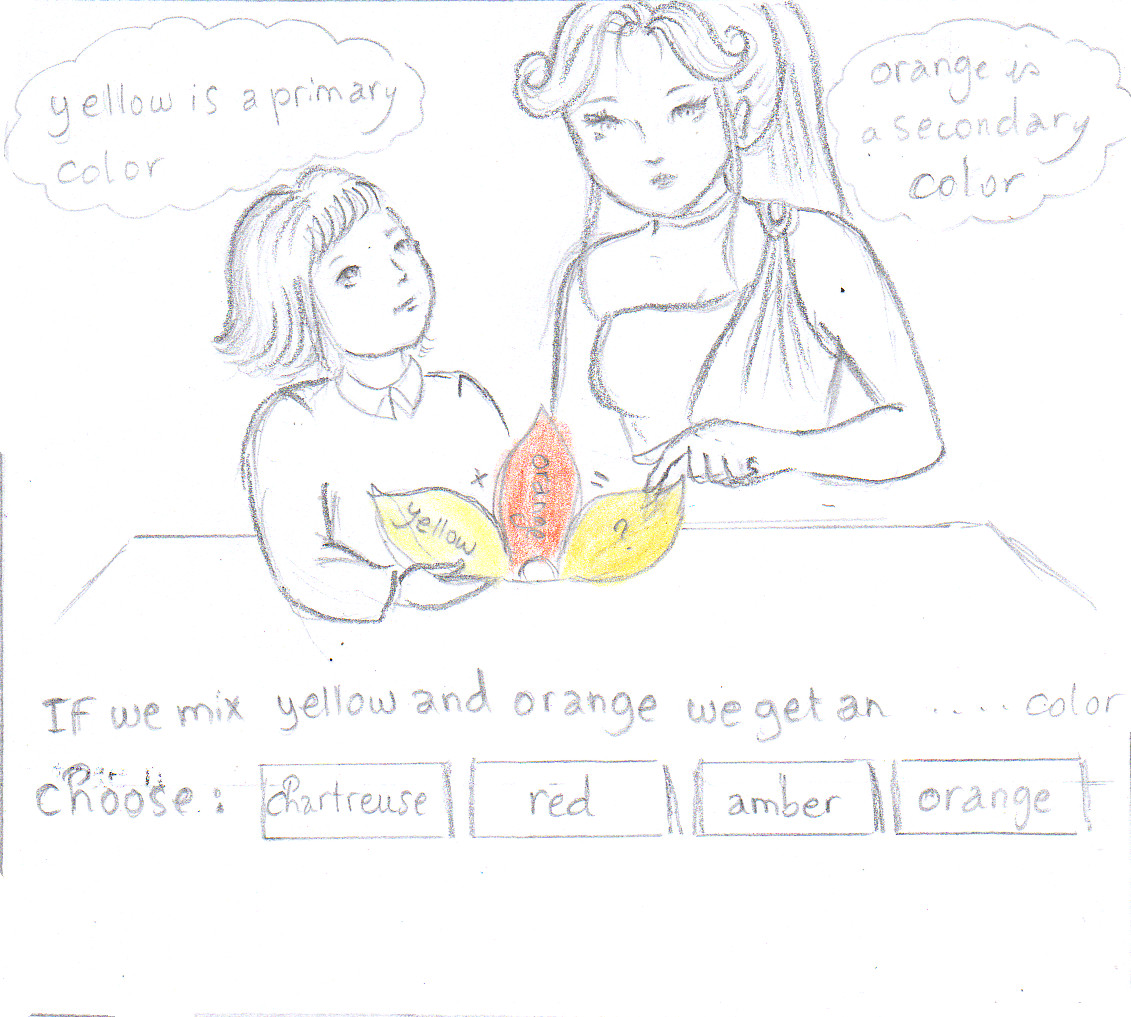 yellow is a primary
color
orange is
a secondary
color
yellow
x
orange
=
?
If we mix yellow and orange we get an .... color
choose:
chartreuse
red
amber
orange